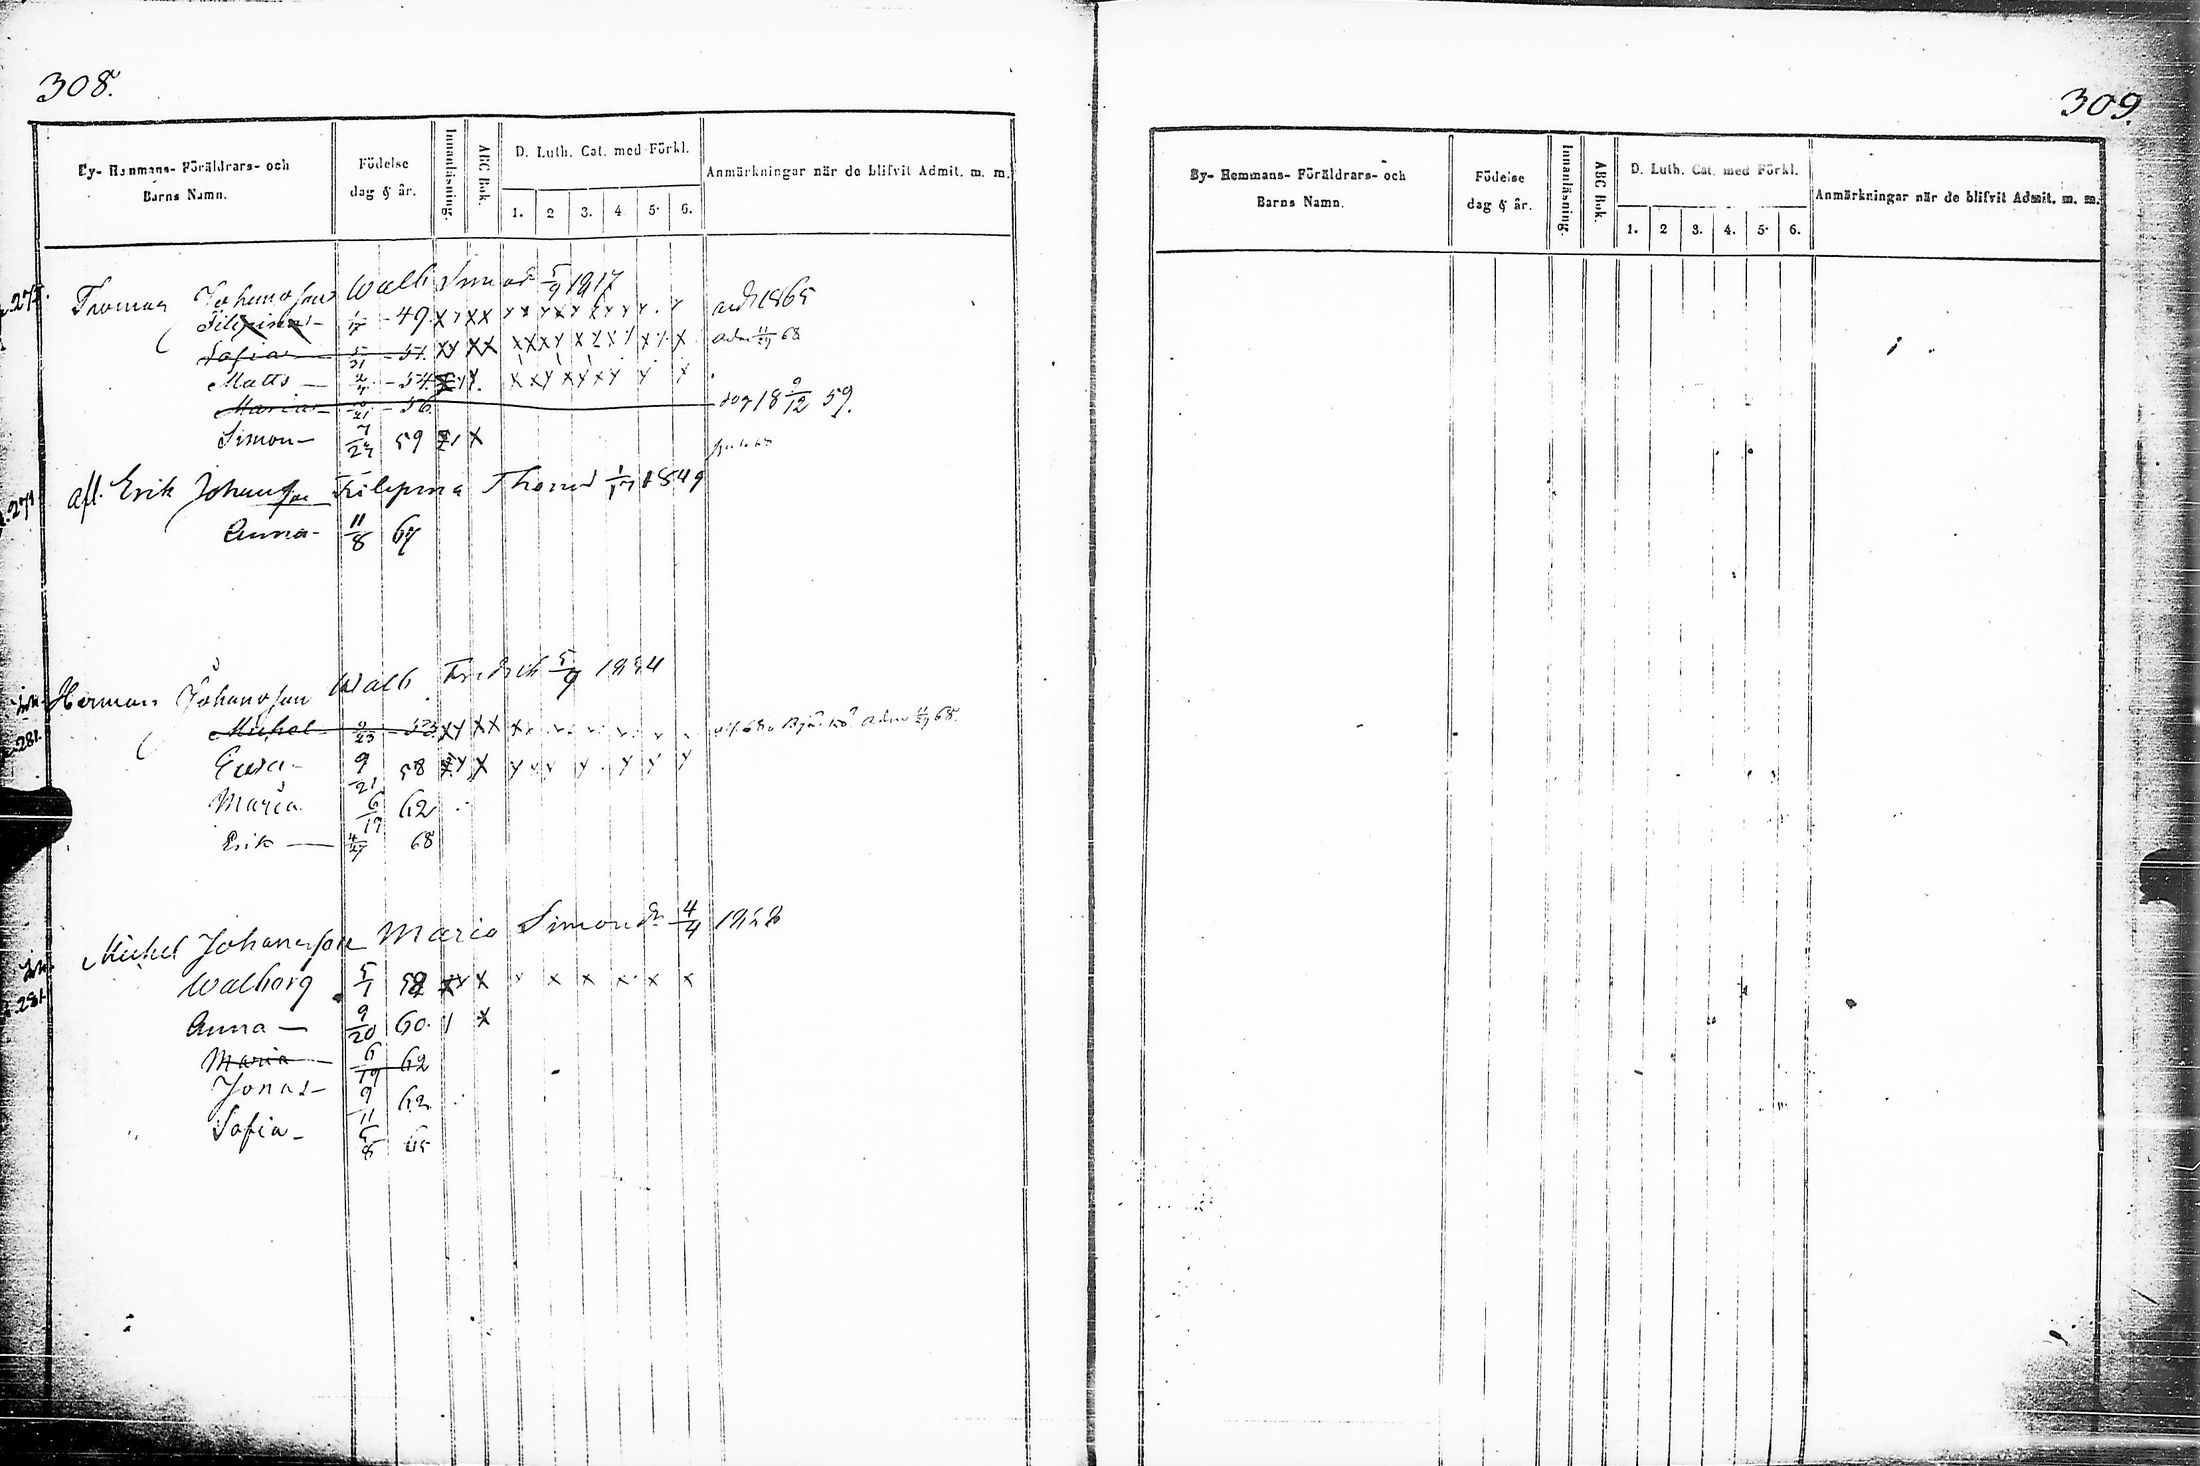 308.
By- Hemmans- Föräldrars- och Barns Namn.
Födelse dag & år.
Innanläsning.
ABC Bok.
D. Luth. Cat. med Förkl.
1. 2 3. 4. 5. 6.
Anmärkningar när de blifvit Admit. m. m.
Thomas Johansson Walb Simonsd 5/9 1817
Filipina 1/17 - 49. adm 1865
Sofia 5/31 - 51. adm 11/29 68
Matts 2/4 - 54
Maria 10/21 - 56. dog 18 9/12 59.
Simon 7/24 59
271 afl. Erik Johansson Filipina Thomsd 1/17 1849
Anna - 11/8 67
Herman Johansson Walb Fredrik 5/9 1834
281. Michel 9/23 - 53 Adm 11/29 68.
9/21 58
Maria 6/19 62
Erik 4/27 68
Michel Johansson Maria Simonsdr 4/4 1828
281. Walborg 5/1 58
Anna 9/20 60.
Maria 6/19 62
Jonas 9/11 62
Sofia 5/8 65
309.
By- Hemmans- Föräldrars- och Barns Namn.
Födelse dag & år.
Innanläsning.
ABC Bok.
D. Luth. Cat. med Förkl.
1. 2 3. 4. 5. 6.
Anmärkningar när de blifvit Admit. m. m.